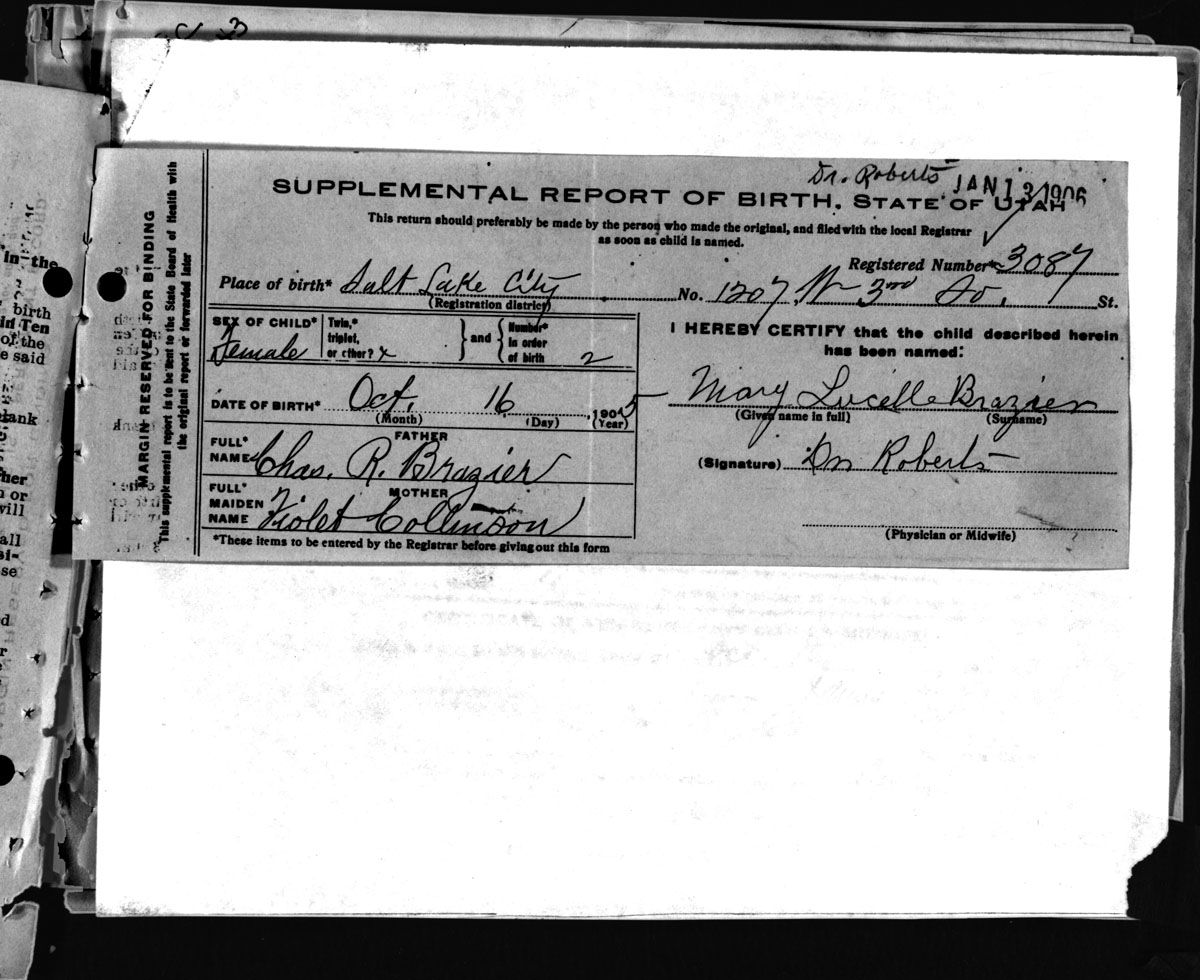 Dr. Roberts JAN 13 1906
SUPPLEMENTAL REPORT OF BIRTH, STATE OF UTAH
This return should preferably be made by the person who made the original, and filed with the local Registrar
as soon as child is named.
Registered Number* 3087
Place of birth* Salt Lake City No. 1207 W 3rd So. St.
(Registration district)
SEX OF CHILD* Female
Twin, triplet, or other? x } and { Number* in order of birth 2
DATE OF BIRTH* Oct. 16, 1905
(Month) (Day) (Year)
FATHER
FULL* NAME Chas. R. Brazier
MOTHER
FULL* MAIDEN NAME Violet Collinson
*These items to be entered by the Registrar before giving out this form
I HEREBY CERTIFY that the child described herein
has been named:
Mary Lucelle Brazier
(Given name in full) (Surname)
(Signature) Dr Roberts
(Physician or Midwife)
MARGIN RESERVED FOR BINDING
This supplemental report is to be sent to the State Board of Health with
the original report or forwarded later
in the
birth
in Ten
of the
e said
lank
her
n or
will
all
si-
se
d
r